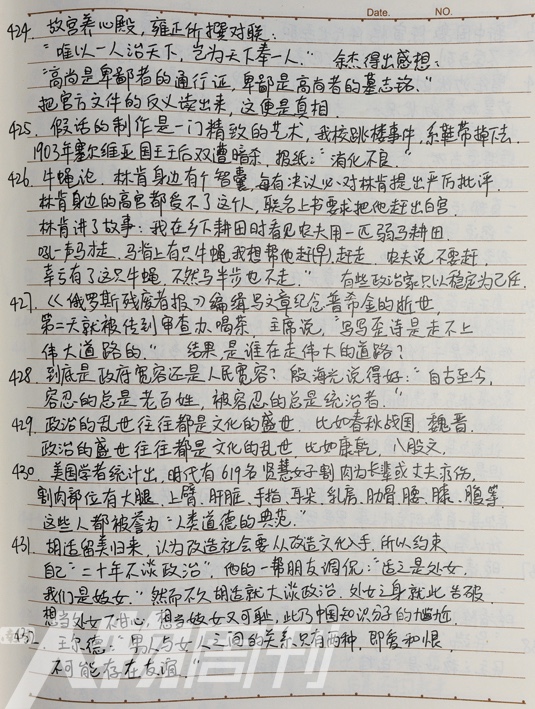 Date.          NO.
424. 故宫养心殿，雍正所撰对联：
"唯以一人治天下，岂为天下奉一人。" 余杰得出感想：
"高尚是卑鄙者的通行证，卑鄙是高尚者的墓志铭。"
把官方文件的反义读出来，这便是真相.
425. 假话的制作是一门精致的艺术，我校跳楼事件，系鞋带掉下去.
1903年塞尔维亚国王王后双遭暗杀，报纸："消化不良."
426. 牛蝇论. 林肯身边有个智囊，每有决议必对林肯提出严厉批评.
林肯身边的高官都受不了这个人，联名上书要求把他赶出白宫.
林肯讲了故事："我在乡下耕田时看见农夫用一匹弱马耕田.
吼一声马才走. 马背上有只牛蝇，我想帮他赶赶走. 农夫说不要赶.
幸亏有了这只牛蝇，不然马半步也不走." 有些政治家只以稳定为己任.
427.《俄罗斯残废者报》编缉写文章纪念普希金的逝世.
第二天就被传到审查办喝茶. 主席说，"写写歪诗是走不上
伟大道路的." 结果，是谁在走伟大的道路？
428. 到底是政府宽容还是人民宽容？殷海光说得好："自古至今，
容忍的总是老百姓，被容忍的总是统治者."
429. 政治的乱世往往都是文化的盛世. 比如春秋战国. 魏晋.
政治的盛世往往都是文化的乱世. 比如康乾，八股文.
430. 美国学者统计出，明代有619名贤慧女子割肉为长辈或丈夫疗伤.
割肉部位有大腿、上臂、肝脏、手指、耳朵、乳房、肋骨、腰、膝、腹等.
这些人都被誉为"人类道德的典范."
431. 胡适留美归来，认为改造社会要从改造文化入手，所以约束
自己"二十年不谈政治"，他的一帮朋友调侃："适之是处女，
我们是妓女." 然而不久胡适就大谈政治. 处女之身就此告破
想当处女不甘心，想当妓女又可耻，此乃中国知识分子的尴尬.
432. 王尔德："男人与女人之间的关系只有两种，即爱和恨
不可能存在友谊."
周刊